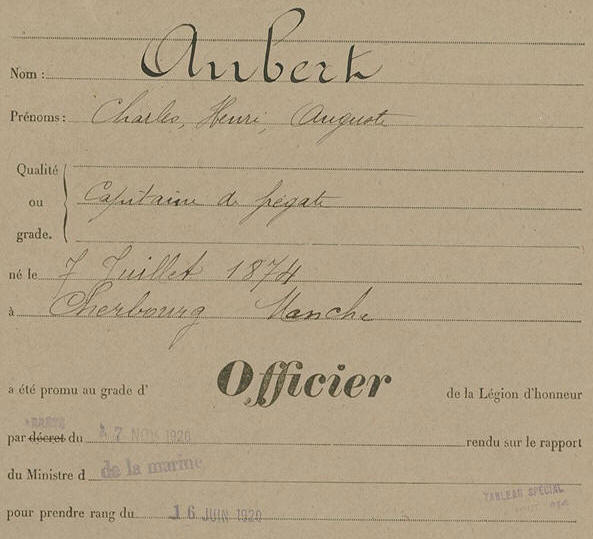 Nom : Aubert
Prénoms : Charles, Henri, Auguste
Qualité
ou Capitaine de frégate
grade.
né le 7 Juillet 1874
à Cherbourg Manche
a été promu au grade d' Officier de la Légion d'honneur
ARRÊTÉ
par décret du 7 NOV 1920 rendu sur le rapport
du Ministre d de la marine
pour prendre rang du 16 JUIN 1920
TABLEAU SPÉCIAL